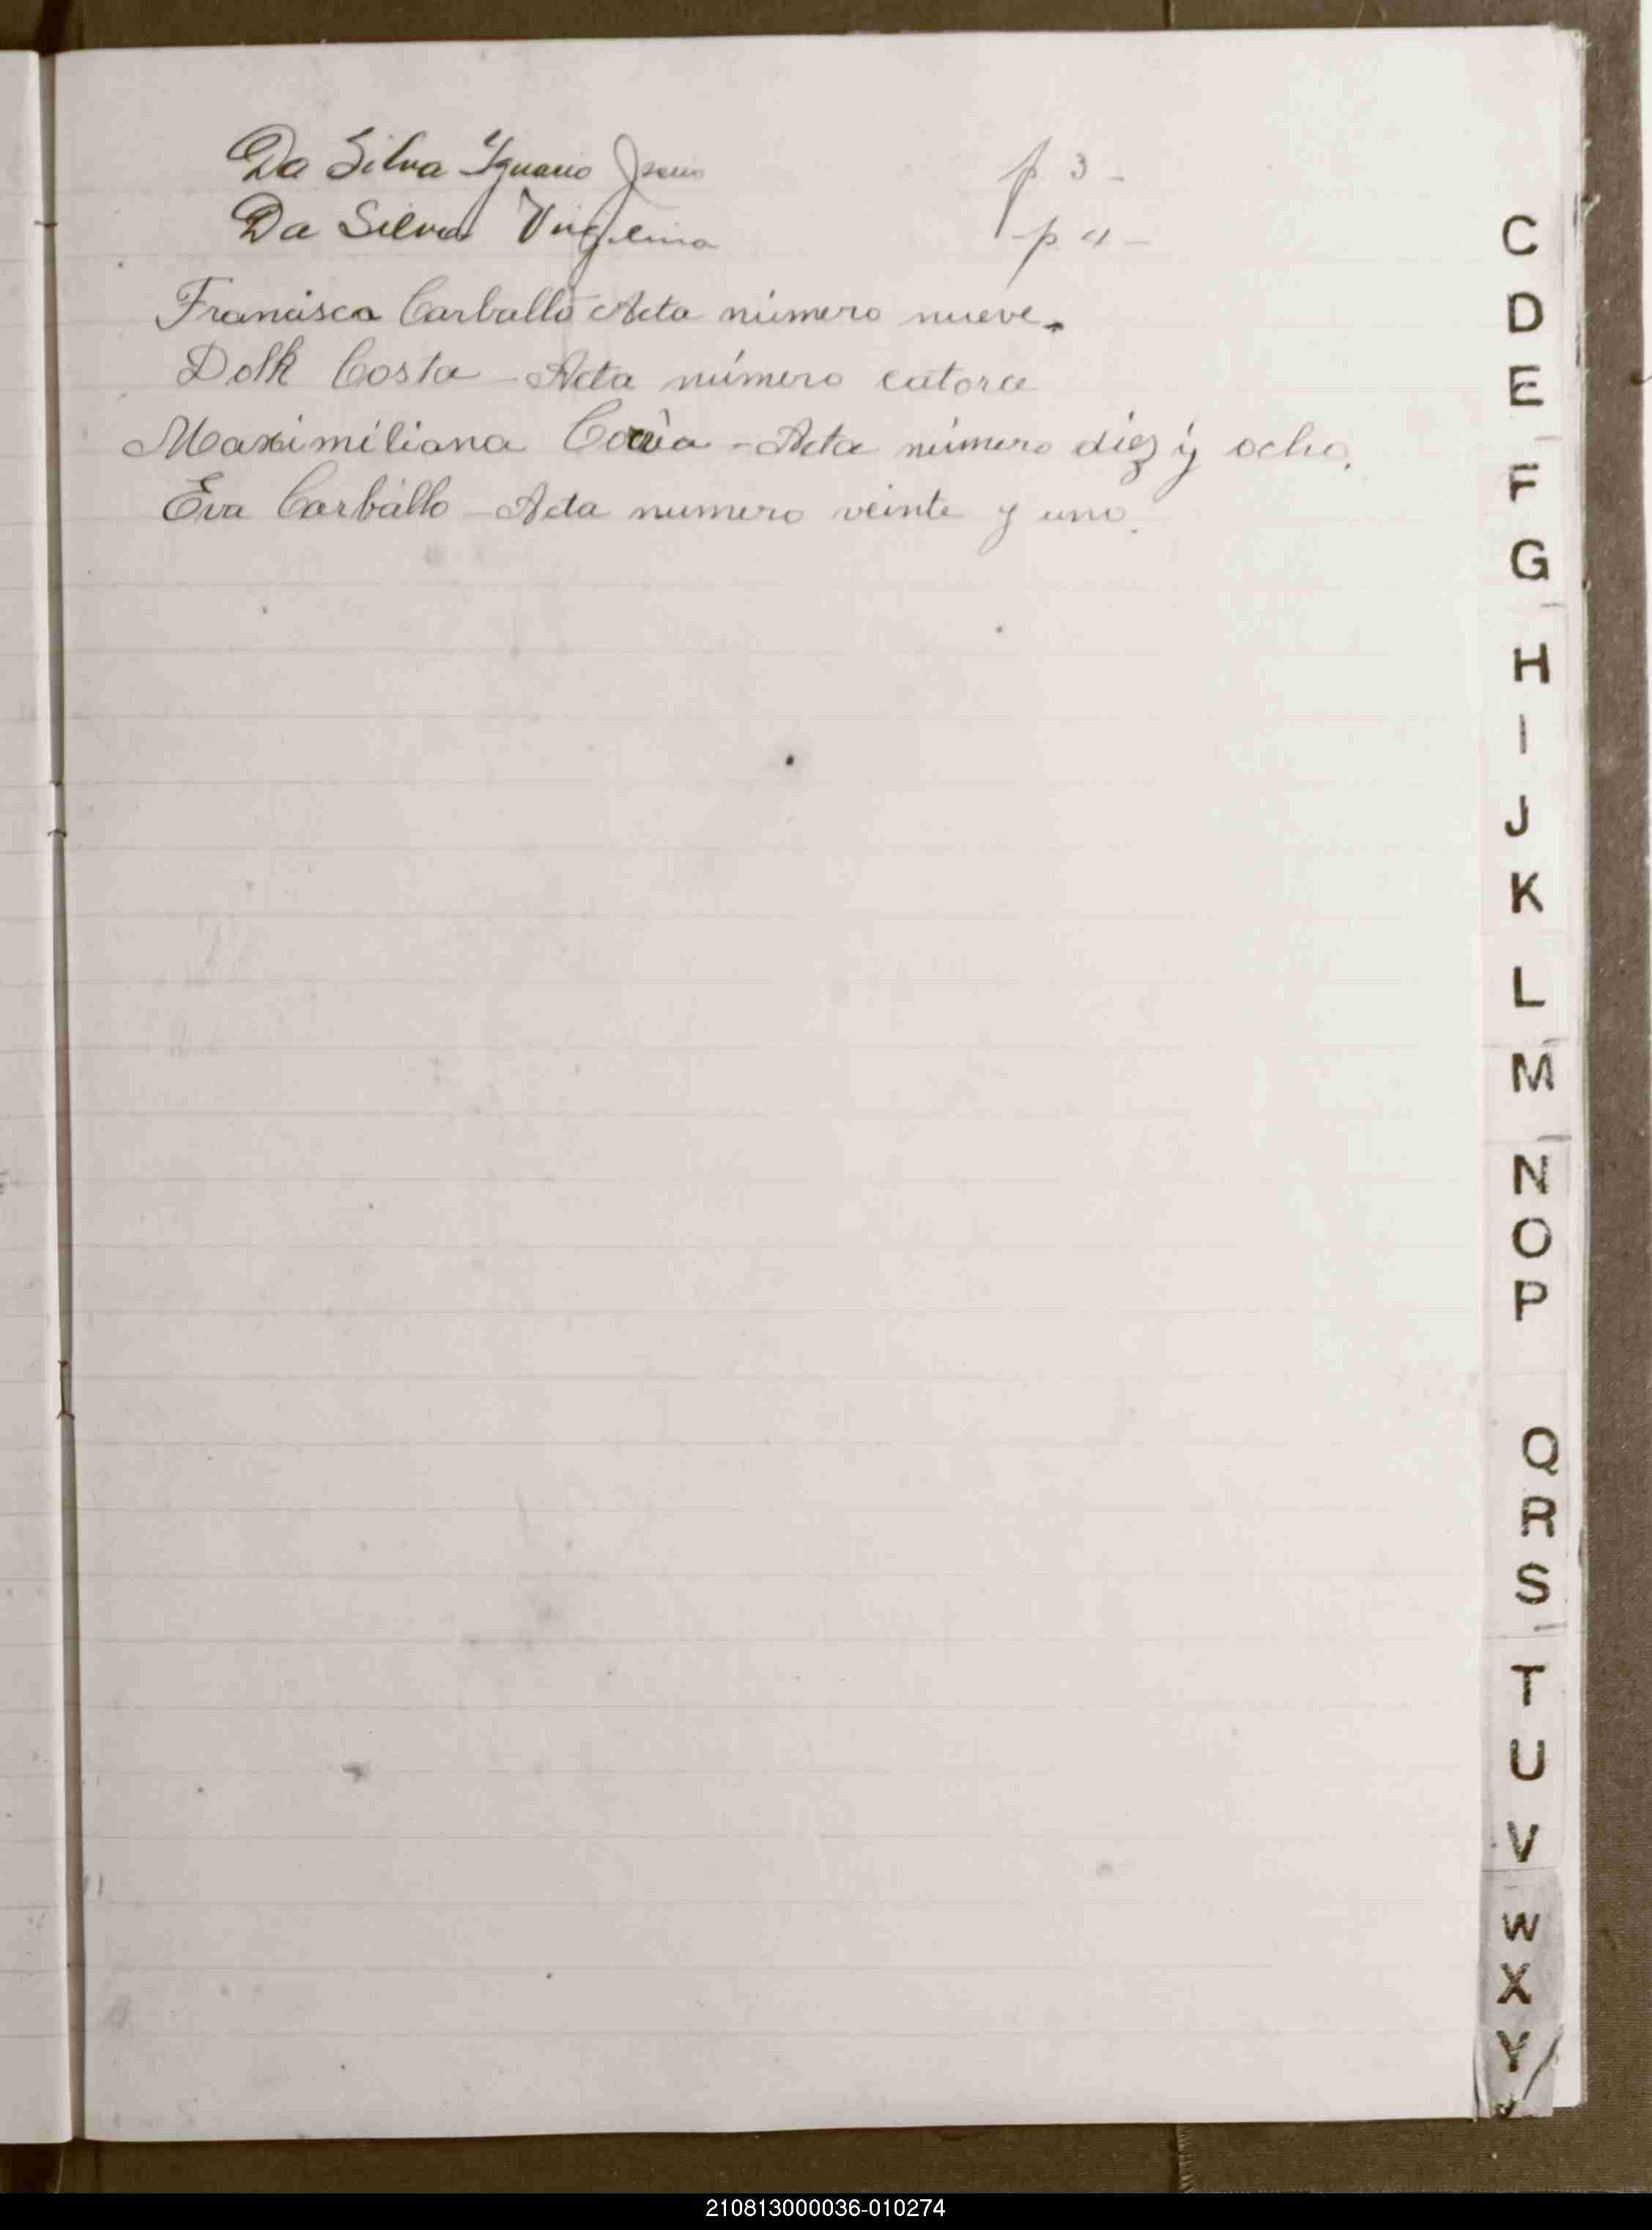 Da Silva Ygnacio p 3 -
Da Silva Virgilina - p 4 -
Francisca Carballo Acta número nueve.
Costa - Acta número catorce
Maximiliana - Acta número diez y ocho.
Eva Carballo - Acta numero veinte y uno.
C
D
E
F
G
H
I
J
K
L
M
N
O
P
Q
R
S
T
U
V
W
X
Y
210813000036-010274